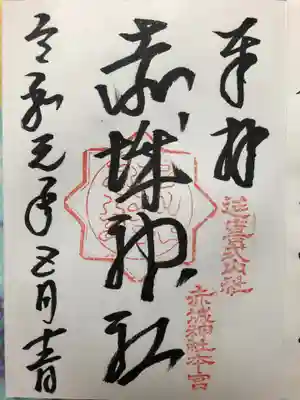 奉拝
延喜式内社
赤城神社本宮
赤城神社
令和元年五月日